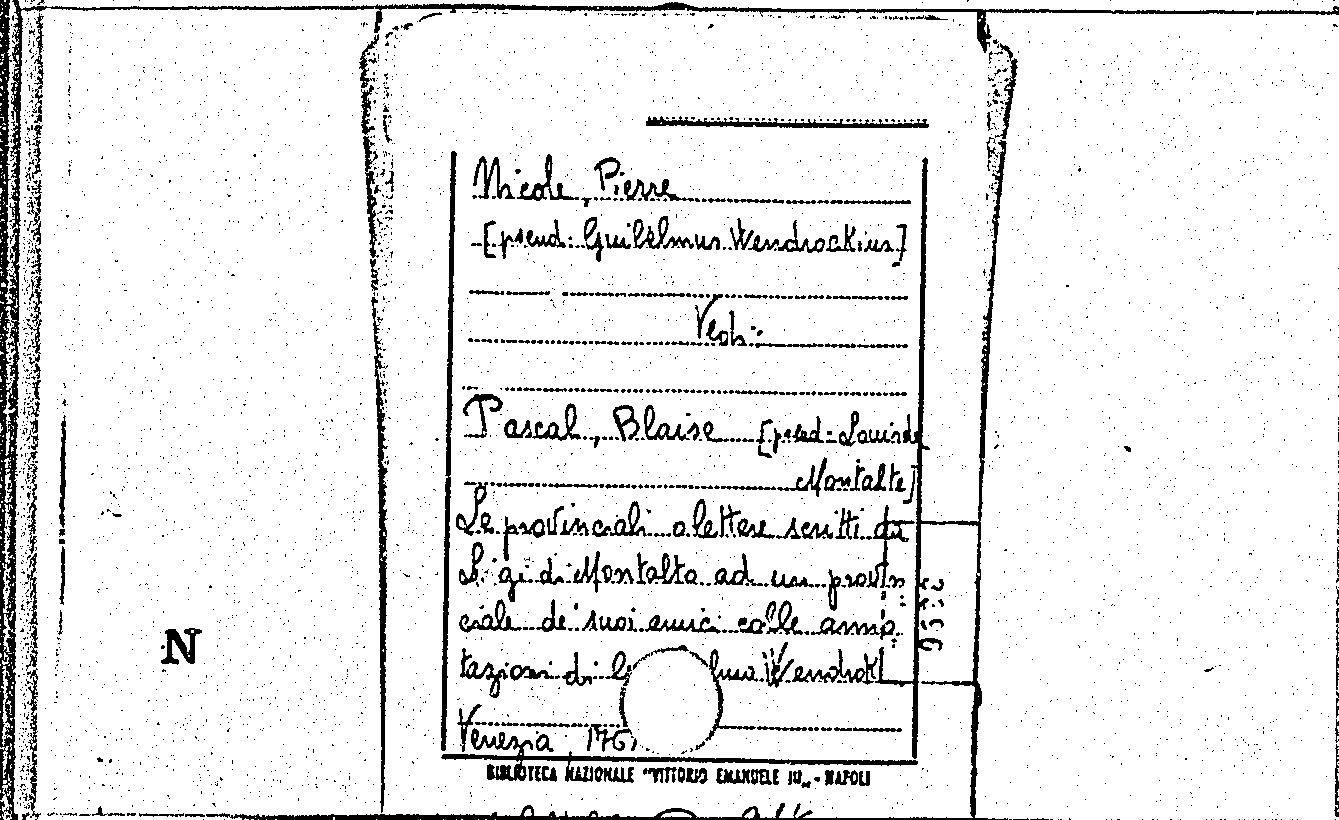 Nicole, Pierre
[pseud: Guilelmus Wendrockius]
Vedi:
Pascal, Blaise [pseud. Louis de
Montalte]
Le provinciali o lettere scritti da
L. gi di Montalto ad un provin
ciale de' suoi amici colle anno
tazioni di Wendrok
Venezia, 176
BIBLIOTECA NAZIONALE "VITTORIO EMANUELE III" - NAPOLI
N